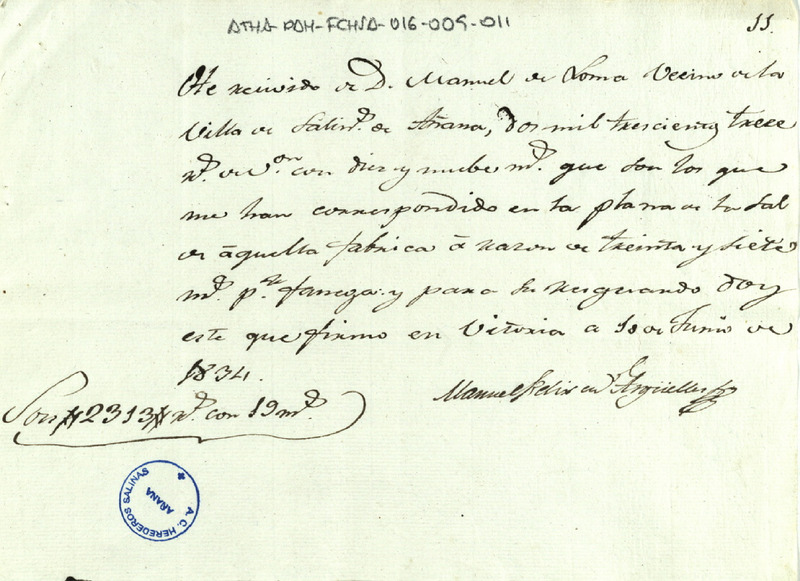 ATHA-DAH-FCHSA-016-009-011
11.
He recivido de D. Manuel de Loma Vecino de la
Villa de Salin.s de Añana, dos mil trescientos trece
r.s de v.on con diez y nuebe m.s que son los que
me han correspondido en la plana de la Sal
de àquella fabrica à razon de treinta y siete
m.s p.r fanega: y para su resguardo doy
este que firmo en Vitoria a 10 de Junio de
1834.
Manuel Felix de Arguelles
Son # 2313 # r.s con 19 m.s
A. C. HEREDEROS SALINAS
AÑANA